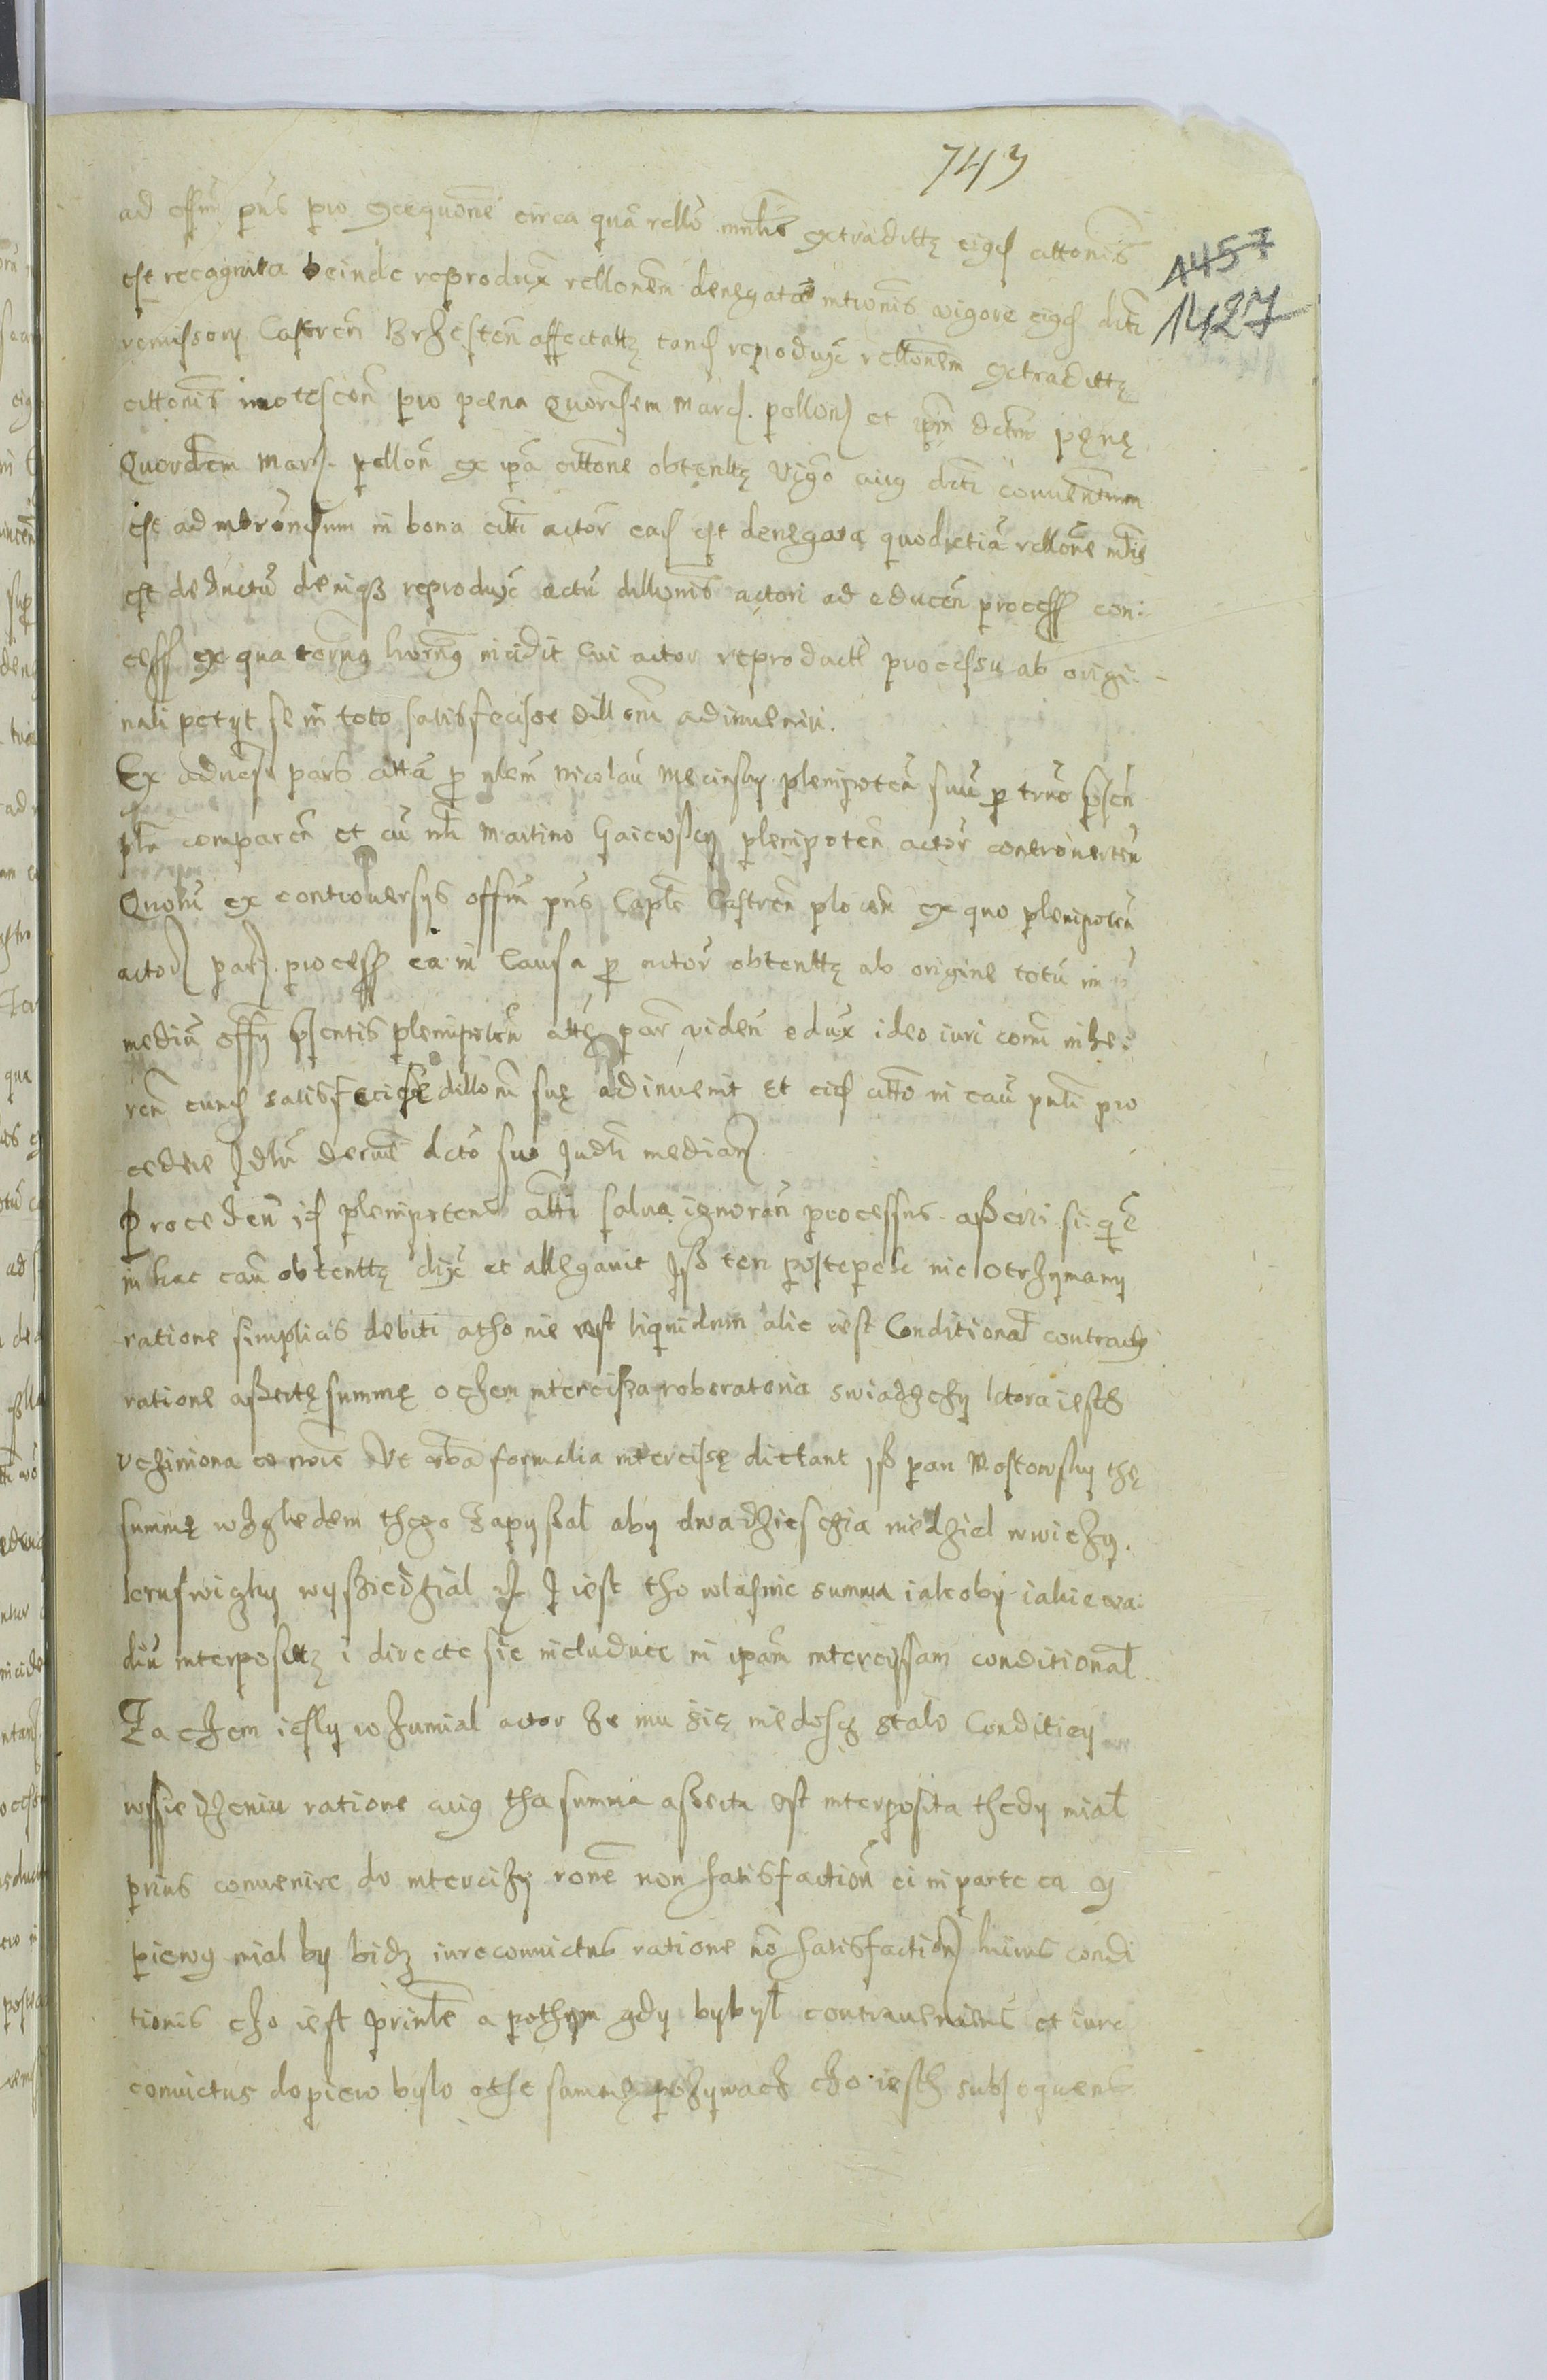 743
1457
1427
ad offm pns pro exequone circa quã rello mnlis extradittę eiusd attonis
est recognita deinde reprodux rellonem denegatæ intronis vigore eiusd dcti
remissorÿ Castren Brzesten affectattę tand reproduxe rellonem extradittę
cittonis innotescen pro pœna Quordcem marc. pollon et ipm dctm pęnę
Quordcem marc. pollon ex ipa cittone obtenttę vigo cuius dcti conuentum
est ad intronisum in bona citti actor ead est denegata quod etiã rellone mlis
est deductũ deniq reproduxe actũ dillonis actori ad educen process con:
cess ex qua terms hornus incidit Cui actor reproducti processu ab origi:
nali petyt se in toto satisfecisse dillom adinueniri.
Ex aduerso pars citta p nlem Nicolaũ Mecinsky plenipoten suũ p trmo psen
pln comparen et cũ nli Martino Gaiewsky plenipoten actor controuerten
Quorũ ex controuersys offm pns Caple Castren plocen ex quo plenipoten
actor par. process ea in Causa p actor obtenttę ab origine totũ in
mediũ offy psentis plenipoten citte par viden edux ideo iuri comi inhe:
ren eund satisfecisse dillom suę adinuenit et eid citto in cau pnti pro
cedere Jdlr decreũ dcto suo Judli median
Proceden id plenipotens citti salua ignoran processus asserti si que
in hac cau obtenttę dixe et allegauit Jß ten postepek nie otrzymany
ratione simplicis debiti atho nie iest liquidum alie iest Conditional contractus
ratione assertę summę o czem intercißa roboratoria swiadczy ktora iesth
vczÿniona co noie Vt vba formalia intercisę dictant Jß pan Mostowsky thę
summę wzgledem thego Zapyßal aby dwadziesczia niedziel wwiezy.
krusswiczky wyßiedzial Jest tho wlasnie summa iakoby iakie va:
diũ interpositę i directe sie includuie in ipam intercyssam conditional
Zaczem iesly wzumial actor że mu się niedosyć stalo Conditiey
wssiedzeniu ratione cuius tha summa asserta est interposita thedy mial
prius conuenire do intercizy rone non satisfaction ei in parte ea y
pierwy mial by bidz iure conuictus ratione no satisfaction huius condi
tionis czo iest prinle a pothym gdy by byl contraueniens et iure
conuictus dopiero bylo othe summę pozywacz czo iesth subsequens